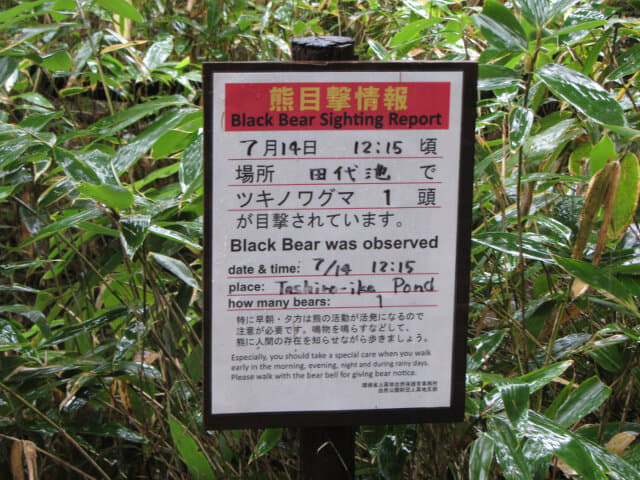 熊目撃情報
Black Bear Sighting Report
7月14日 12:15 頃
場所 田代池 で
ツキノワグマ 1 頭
が目撃されています。
Black Bear was observed
date & time: 7/14 12:15
place: Tashiro-ike Pond
how many bears: 1
特に早朝・夕方は熊の活動が活発になるので
注意が必要です。鳴物を鳴らすなどして、
熊に人間の存在を知らせながら歩きましょう。
Especially, you should take a special care when you walk
early in the morning, evening, night and during rainy days.
Please walk with the bear bell for giving bear notice.
環境省上高地自然保護官事務所
自然公園財団上高地支部